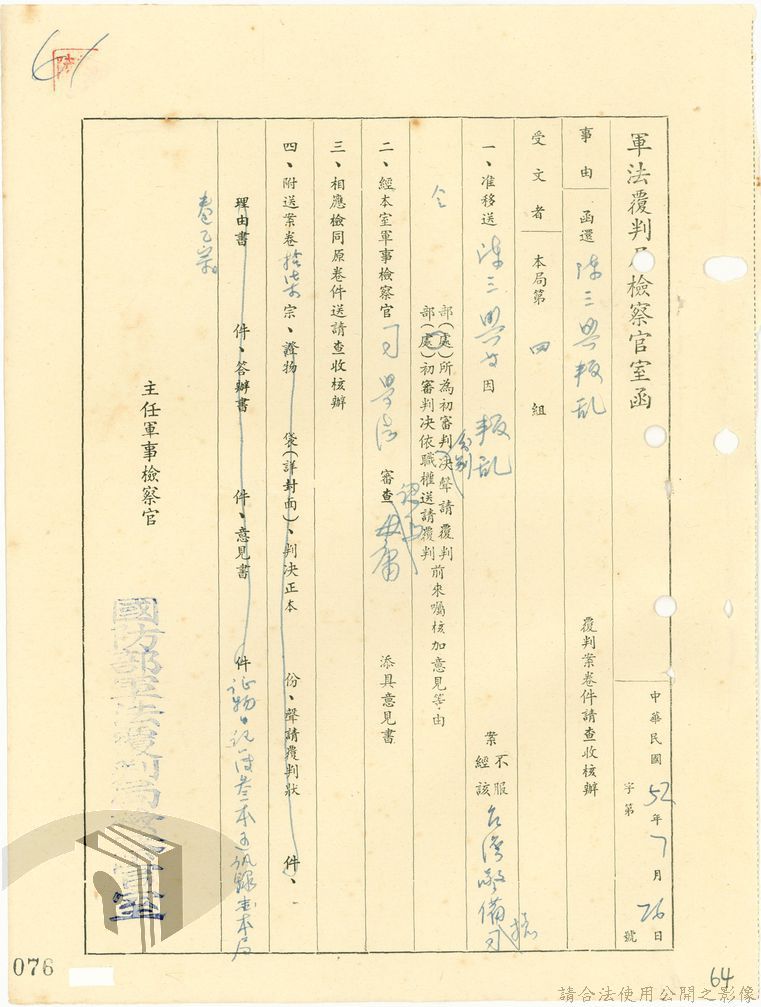 軍法覆判局檢察官室函
中華民國52年7月26日
字第　號
事由　函還　陳三興叛乱　覆判案卷件請查收核辦
受文者　本局第　四　組
一、准移送　陳三興等因　叛乱　案　不服　經該　台灣警備司
令　部(處)所為初審判決聲請覆判　部(處)初審判決依職權送請覆判　前來囑核加意見等由
二、經本室軍事檢察官　審查　毋庸　添具意見書
三、相應檢同原卷件送請查收核辦
四、附送案卷拾柒宗、證物　袋(詳封面)、判決正本　份、聲請覆判狀　件、
理由書　件、答辯書　件、意見書　件
主任軍事檢察官
國防部軍法覆判局檢察官室
076
64
請合法使用公開之影像